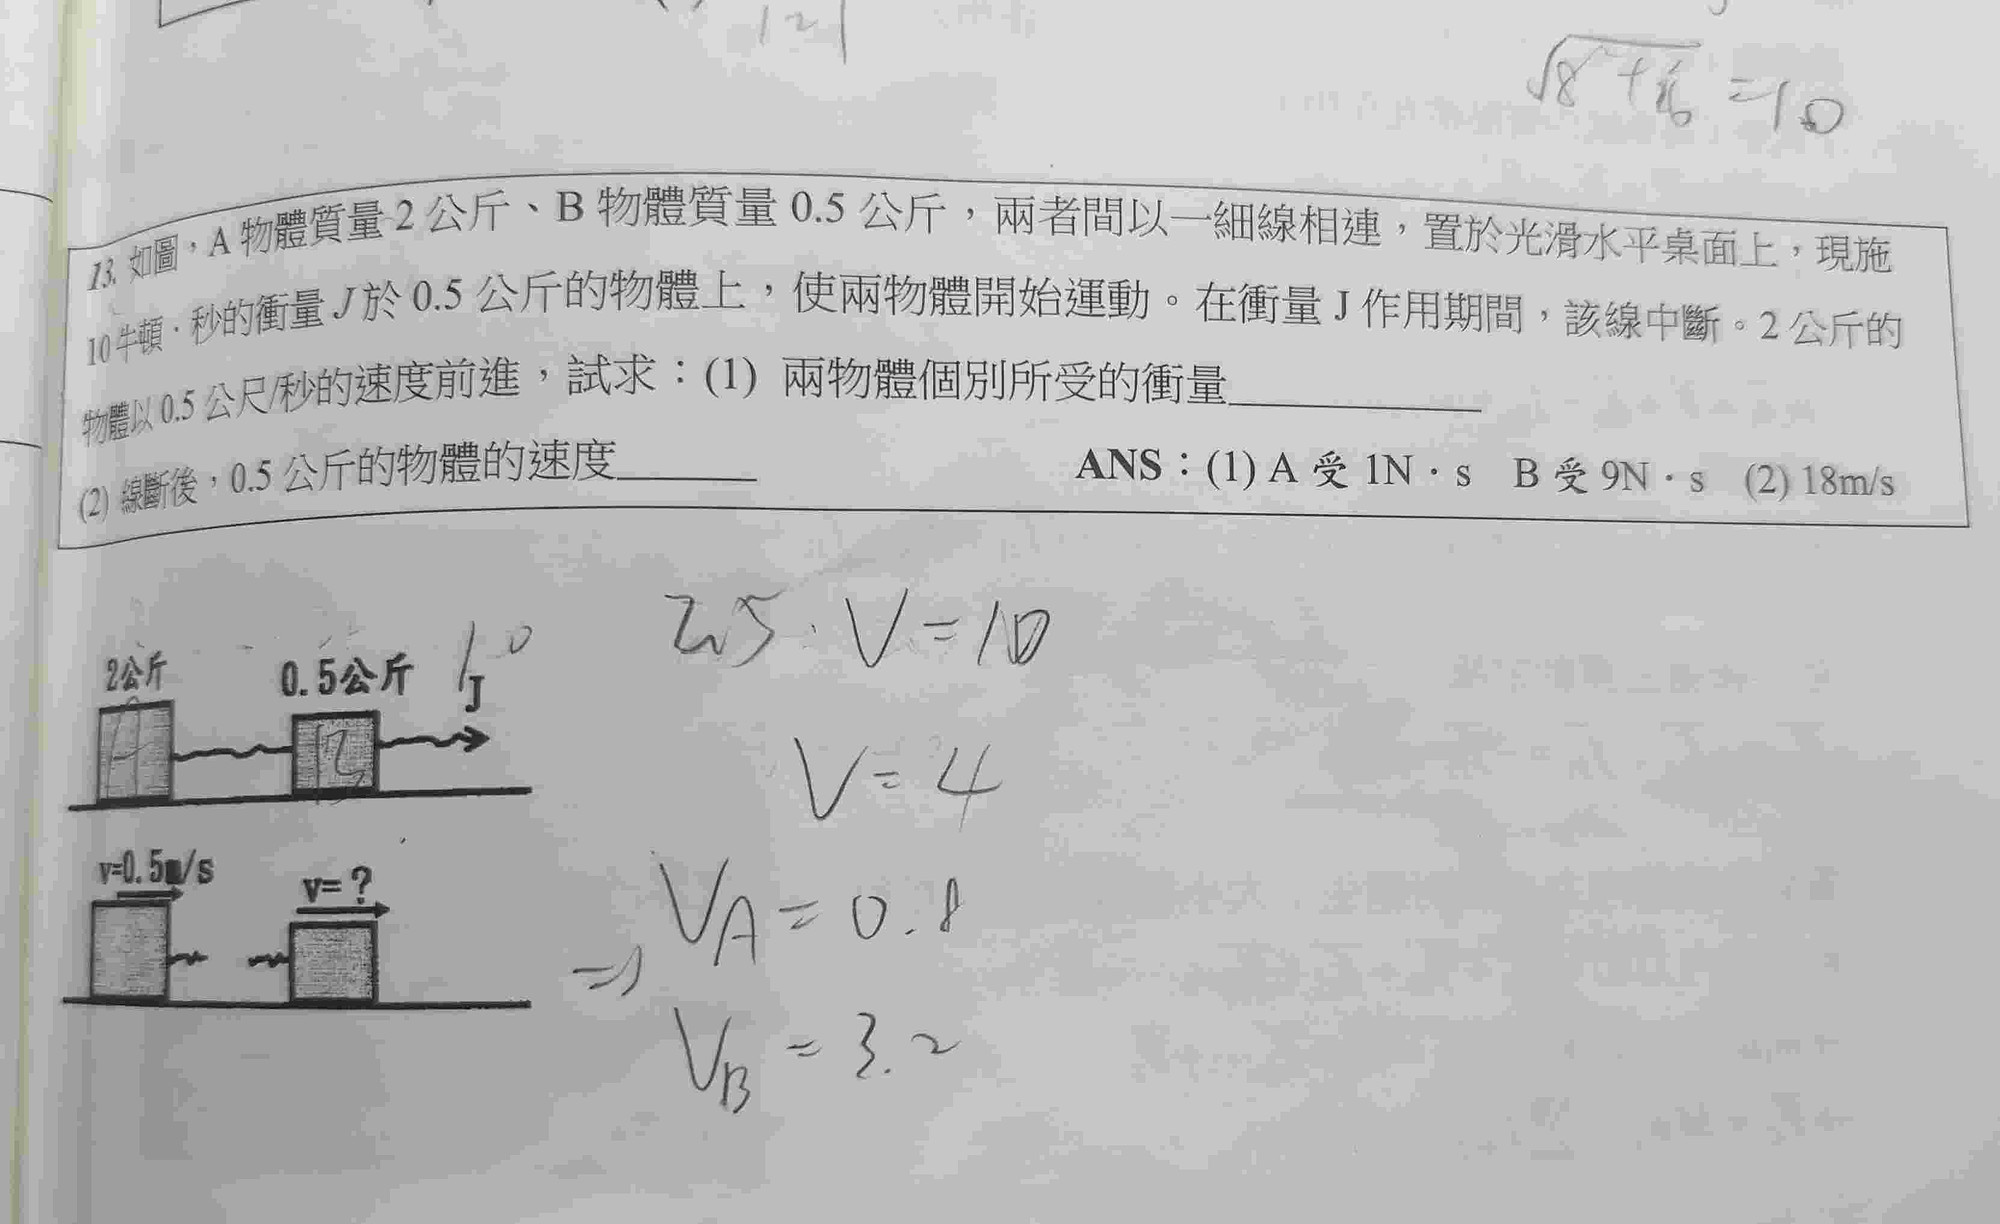 121
√8+6 =10
13. 如圖，A 物體質量 2 公斤、B 物體質量 0.5 公斤，兩者間以一細線相連，置於光滑水平桌面上，現施
10 牛頓·秒的衝量 J 於 0.5 公斤的物體上，使兩物體開始運動。在衝量 J 作用期間，該線中斷。2 公斤的
物體以 0.5 公尺/秒的速度前進，試求：(1) 兩物體個別所受的衝量
(2) 線斷後，0.5 公斤的物體的速度 ANS：(1) A 受 1N·s B 受 9N·s (2) 18m/s
2.5·V=10
10
2公斤 0.5公斤 J
A B
V=4
v=0.5m/s v=?
⇒ VA=0.8
VB=3.2